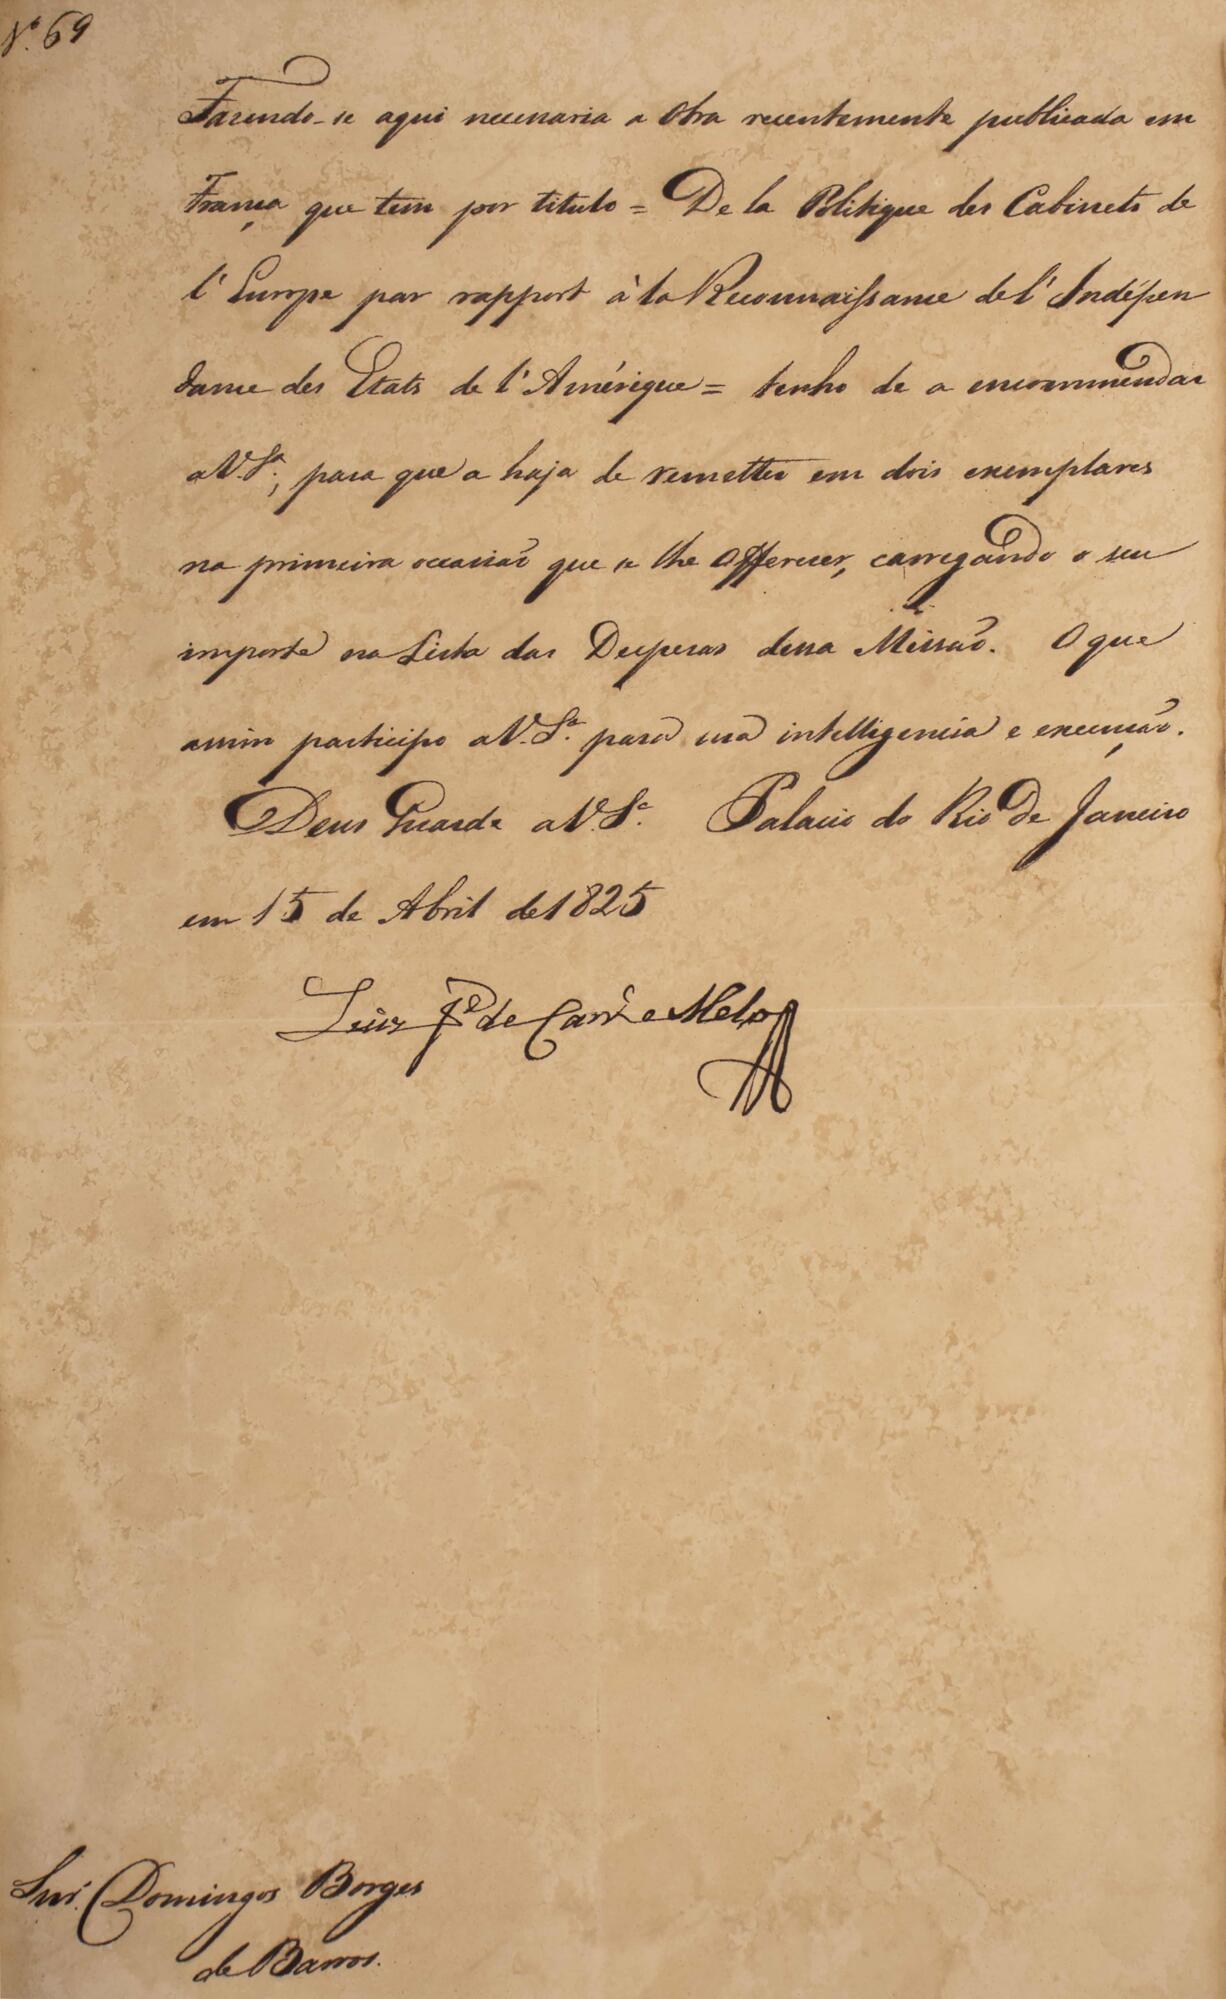 Nº. 69
Fazendo-se aqui necessaria a Obra recentemente publicada em
França que tem por titulo = De la Politique des Cabinets de
l'Europe par rapport à la Reconnaissance de l'Indépen
dance des Etats de l'Amérique = tenho de a encommendar
a V. Sª., para que a haja de remetter em dois exemplares
na primeira occasião que se lhe offerecer, carregando o seu
importe na Lista das Despezas dessa Missão. O que
assim participo a V. Sª. para sua intelligencia e execução.
Deus Guarde a V. Sª. Palacio do Rio de Janeiro
em 15 de Abril de 1825
Luiz Jº de Carvº e Mello
Snr. Domingos Borges
de Barros.